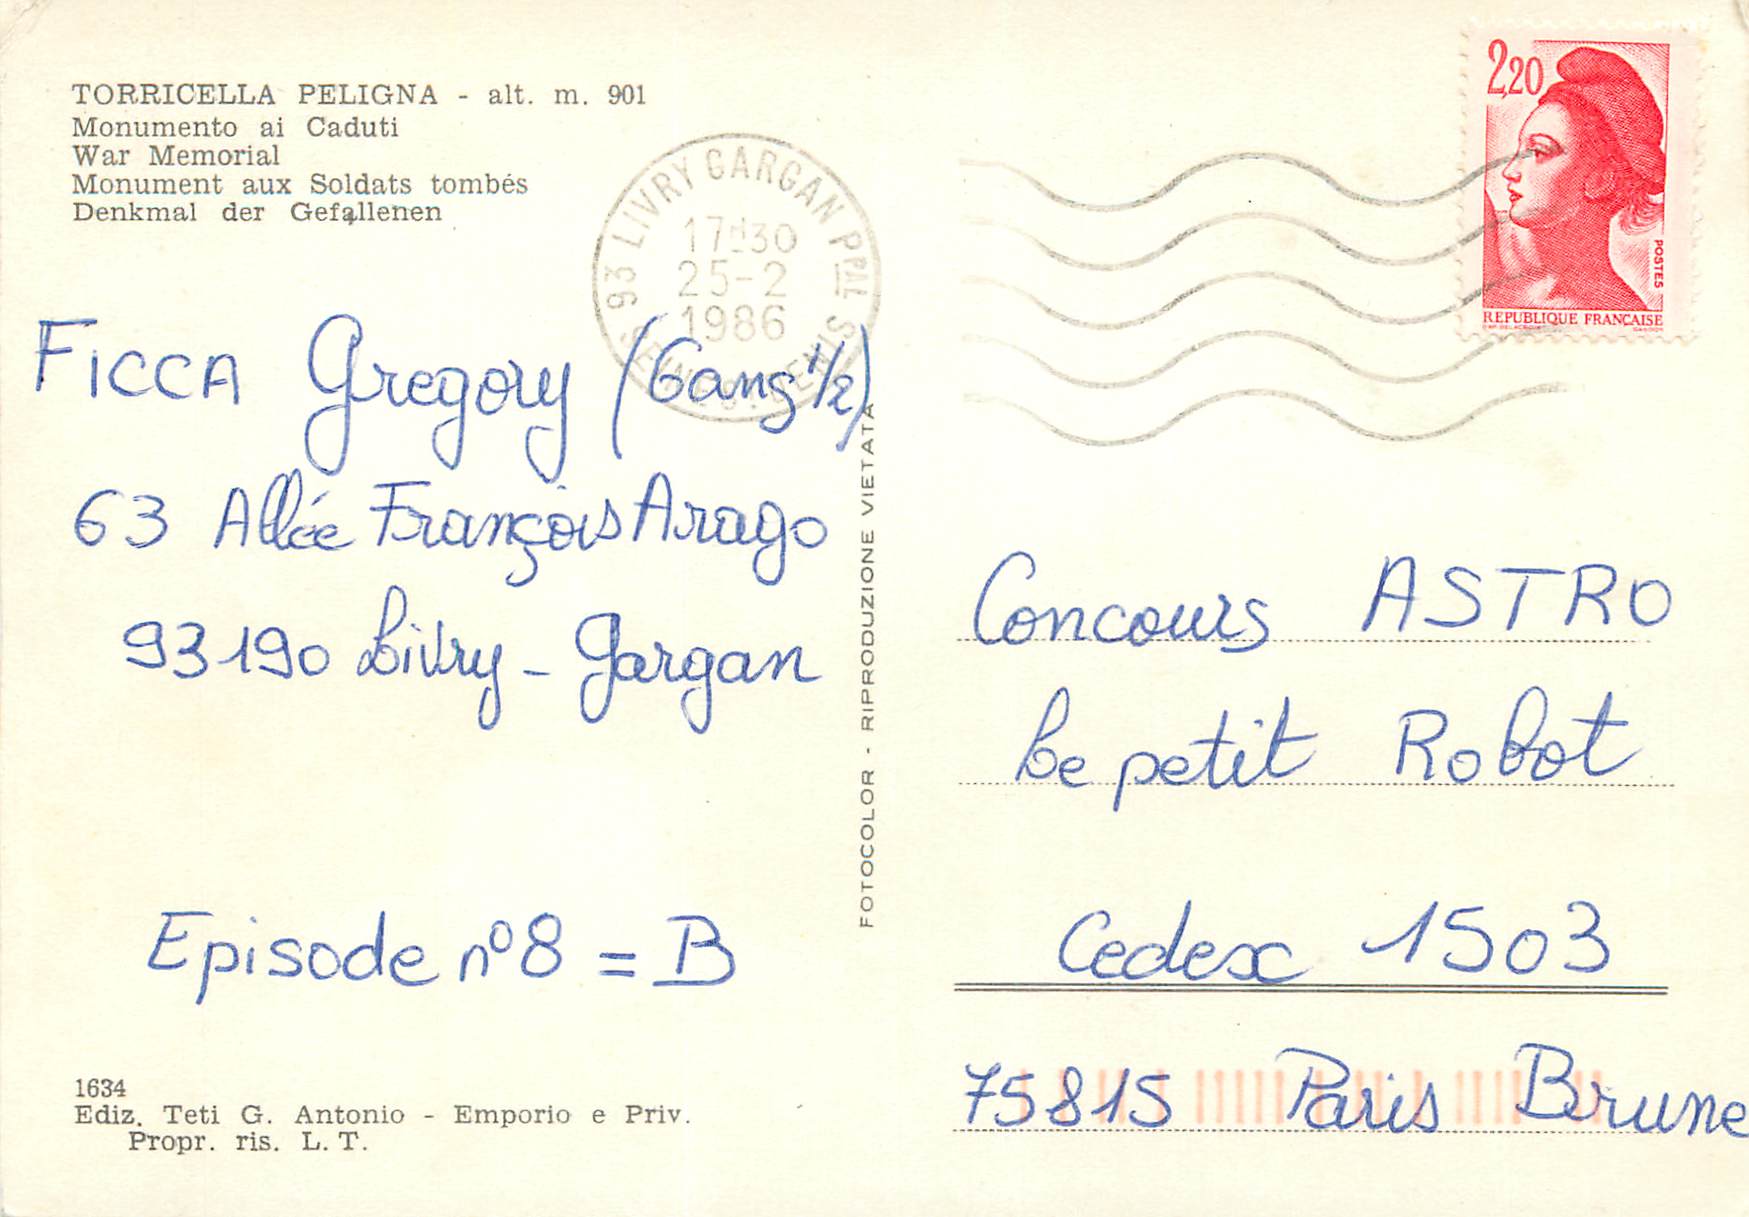 TORRICELLA PELIGNA - alt. m. 901
Monumento ai Caduti
War Memorial
Monument aux Soldats tombés
Denkmal der Gefallenen
93 LIVRY GARGAN PPAL
17H30
25-2
1986
SEINE ST DENIS
2,20
POSTES
REPUBLIQUE FRANÇAISE
FICCA Gregory (Gang 1/2)
63 Allée François Arago
93190 Livry - Gargan
Episode n°8 = B
FOTOCOLOR - RIPRODUZIONE VIETATA
Concours ASTRO
Le petit Robot
Cedex 1503
75815 Paris Brune
1634
Ediz. Teti G. Antonio - Emporio e Priv.
Propr. ris. L. T.